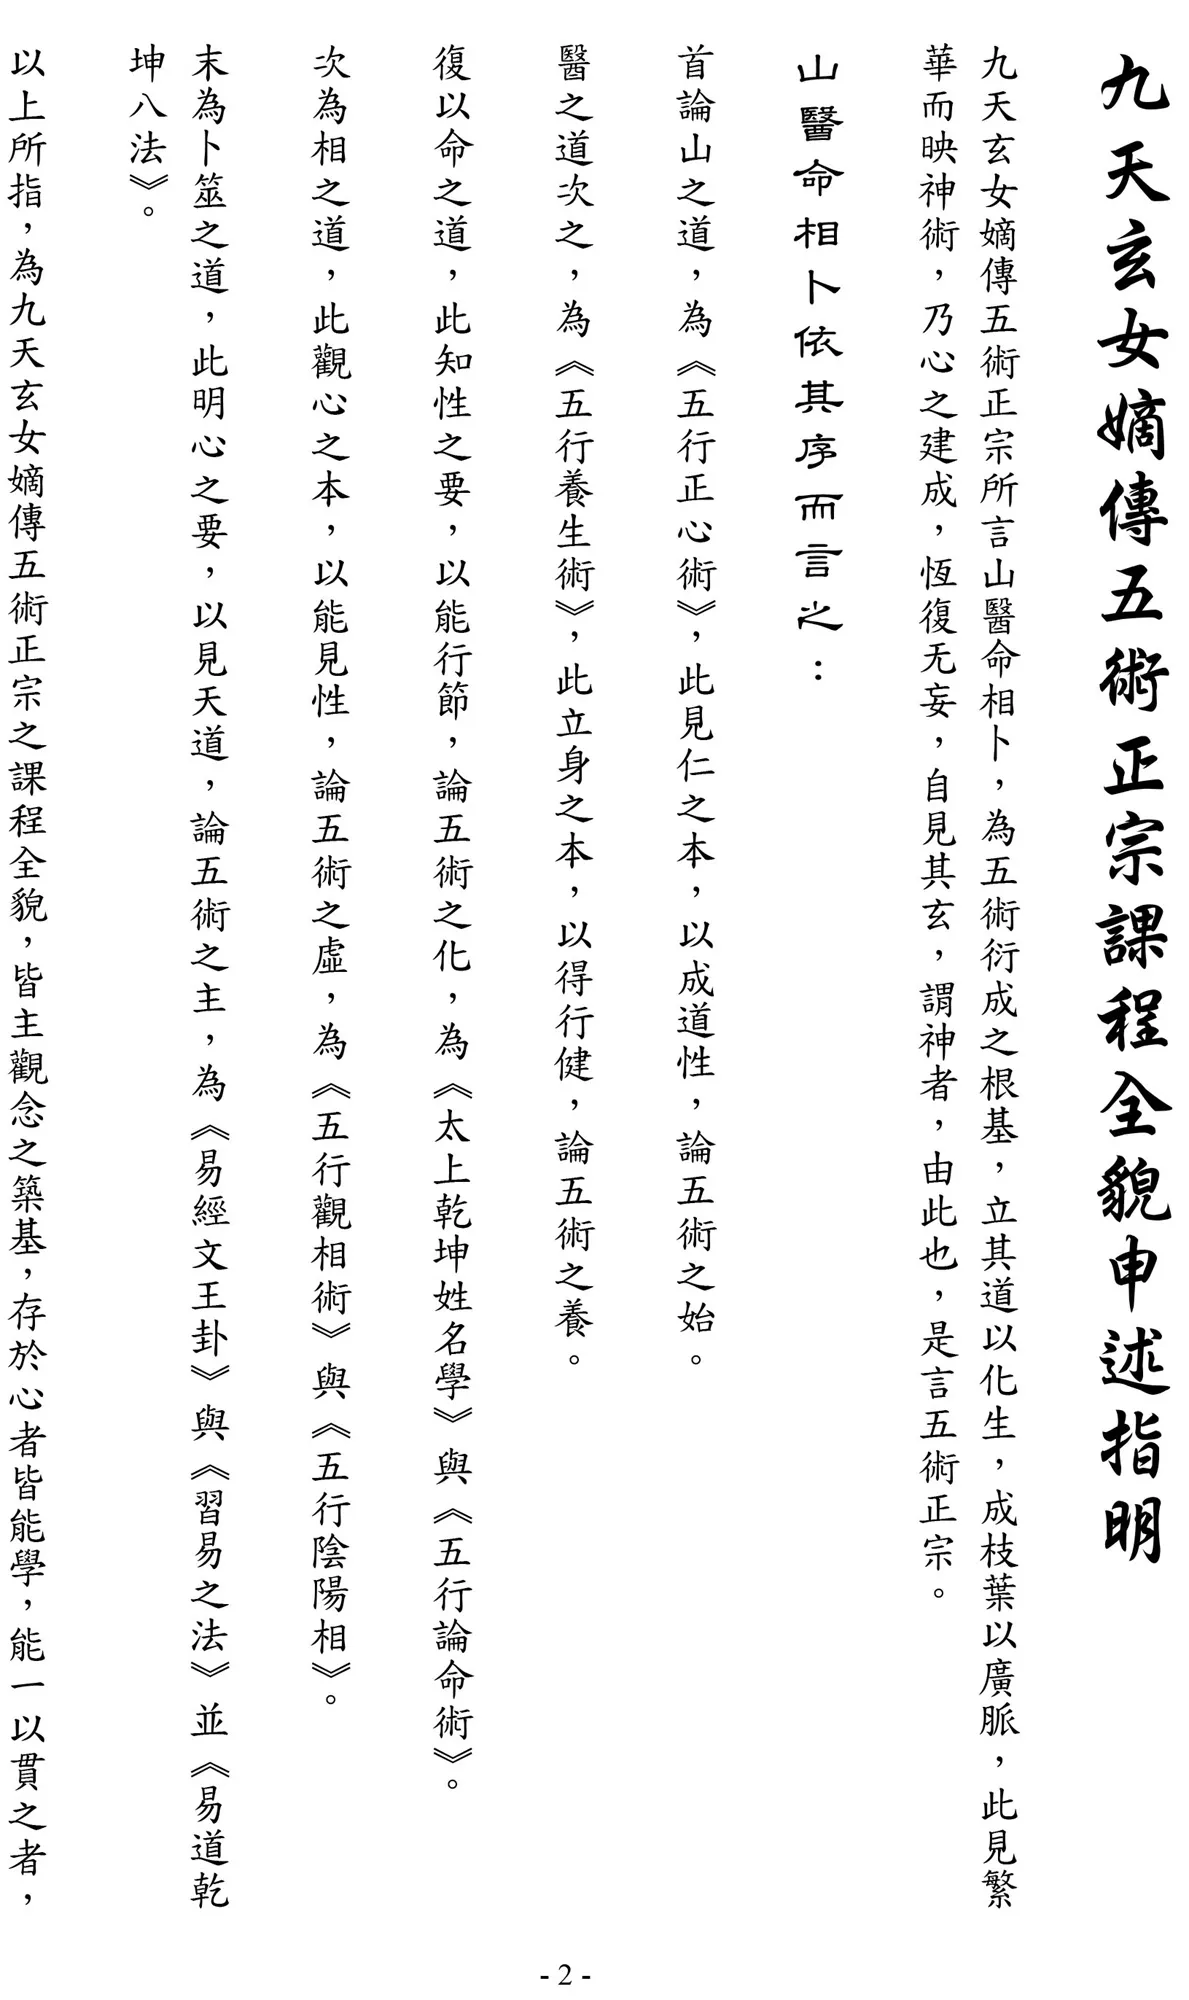 九天玄女嫡傳五術正宗課程全貌申述指明
九天玄女嫡傳五術正宗所言山醫命相卜，為五術衍成之根基，立其道以化生，成枝葉以廣脈，此見繁
華而映神術，乃心之建成，恆復无妄，自見其玄，謂神者，由此也，是言五術正宗。
山醫命相卜依其序而言之：
首論山之道，為《五行正心術》，此見仁之本，以成道性，論五術之始。
醫之道次之，為《五行養生術》，此立身之本，以得行健，論五術之養。
復以命之道，此知性之要，以能行節，論五術之化，為《太上乾坤姓名學》與《五行論命術》。
次為相之道，此觀心之本，以能見性，論五術之虛，為《五行觀相術》與《五行陰陽相》。
末為卜筮之道，此明心之要，以見天道，論五術之主，為《易經文王卦》與《習易之法》並《易道乾
坤八法》。
以上所指，為九天玄女嫡傳五術正宗之課程全貌，皆主觀念之築基，存於心者皆能學，能一以貫之者，
- 2 -